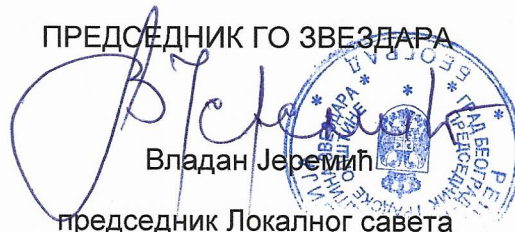 ПРЕДСЕДНИК ГО ЗВЕЗДАРА
Владан Јеремић
председник Локалног савета
БЕОГРАД
ГРАД БЕОГРАД
ПРЕДСЕДНИК